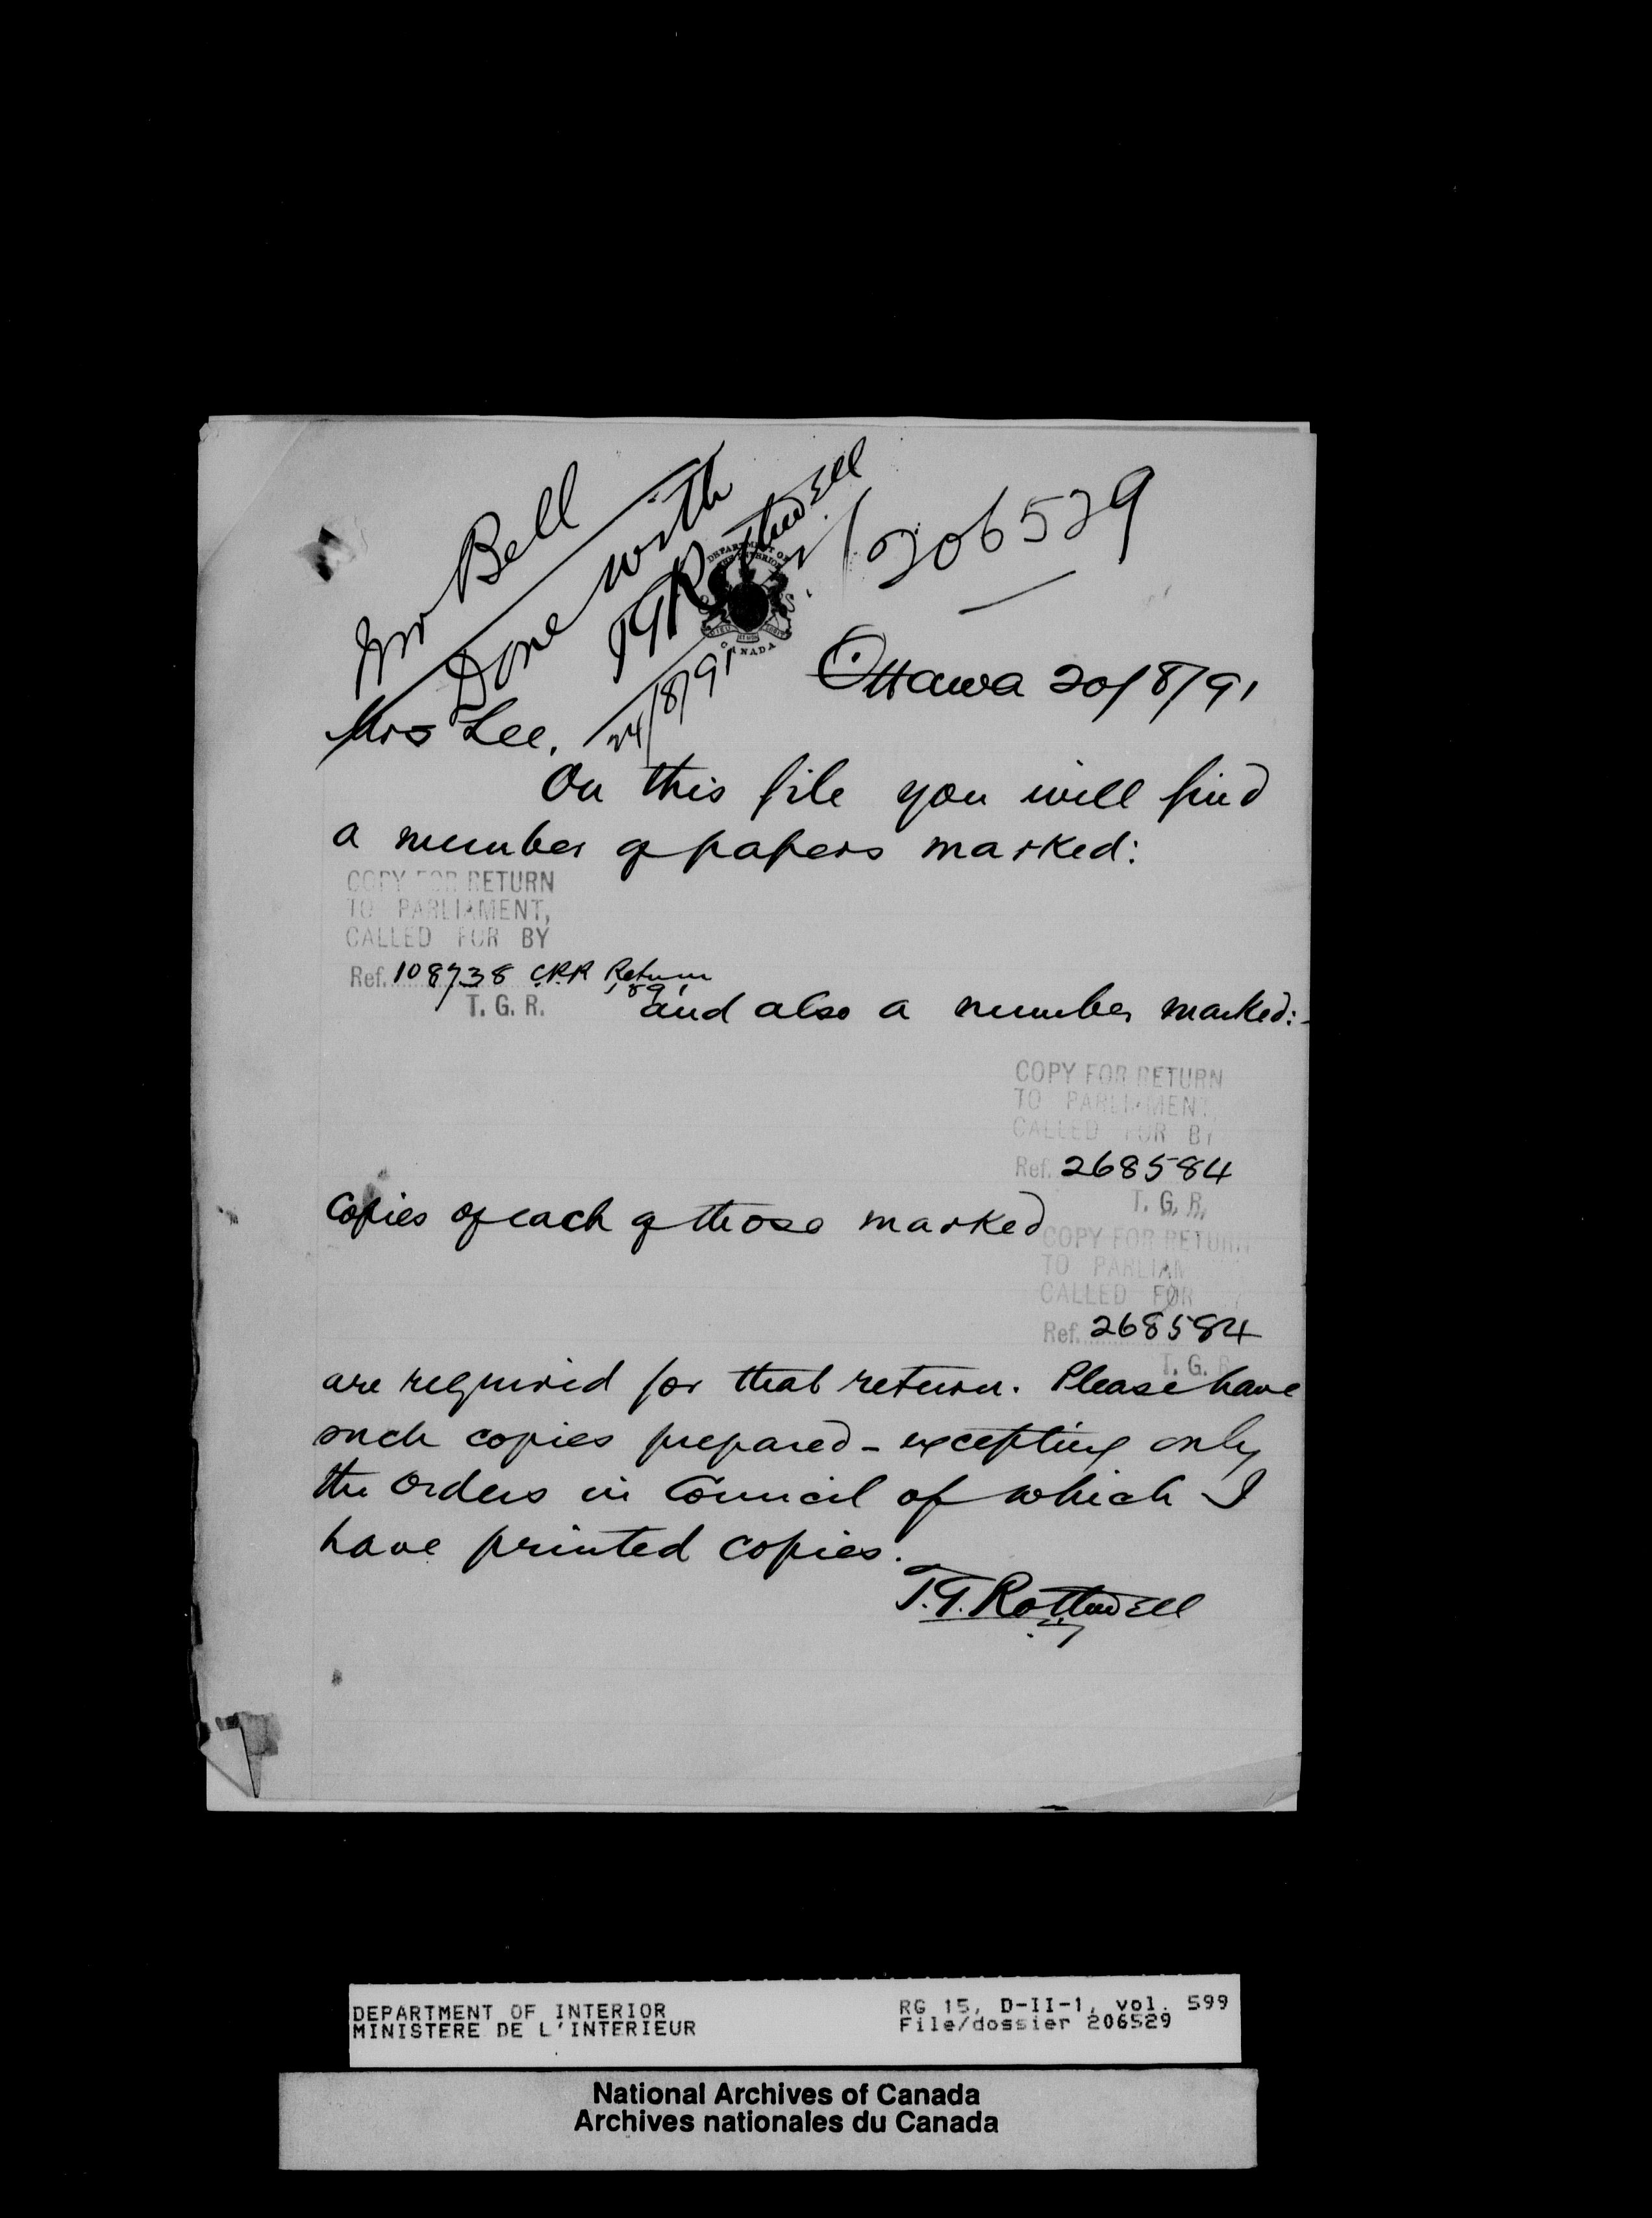 Mr Bell
Done with
T G Rothwell
24/8/91
206529
DEPARTMENT OF
THE INTERIOR
CANADA
Ottawa 20/8/91
Mrs Lee.
On this file you will find
a number of papers marked:
COPY FOR RETURN
TO PARLIAMENT,
CALLED FOR BY
Ref. 108738 C.P.R Return
1891
T. G. R.
and also a number marked:-
COPY FOR RETURN
TO PARLIAMENT,
CALLED FOR BY
Ref. 268584
T. G. R.
Copies of each of those marked
COPY FOR RETURN
TO PARLIAM
CALLED FOR
Ref. 268584
T. G. R
are required for that return. Please have
such copies prepared - excepting only
the Orders in Council of which I
have printed copies.
T.G. Rothwell
DEPARTMENT OF INTERIOR
MINISTERE DE L'INTERIEUR
RG 15, D-II-1, vol. 599
File/dossier 206529
National Archives of Canada
Archives nationales du Canada